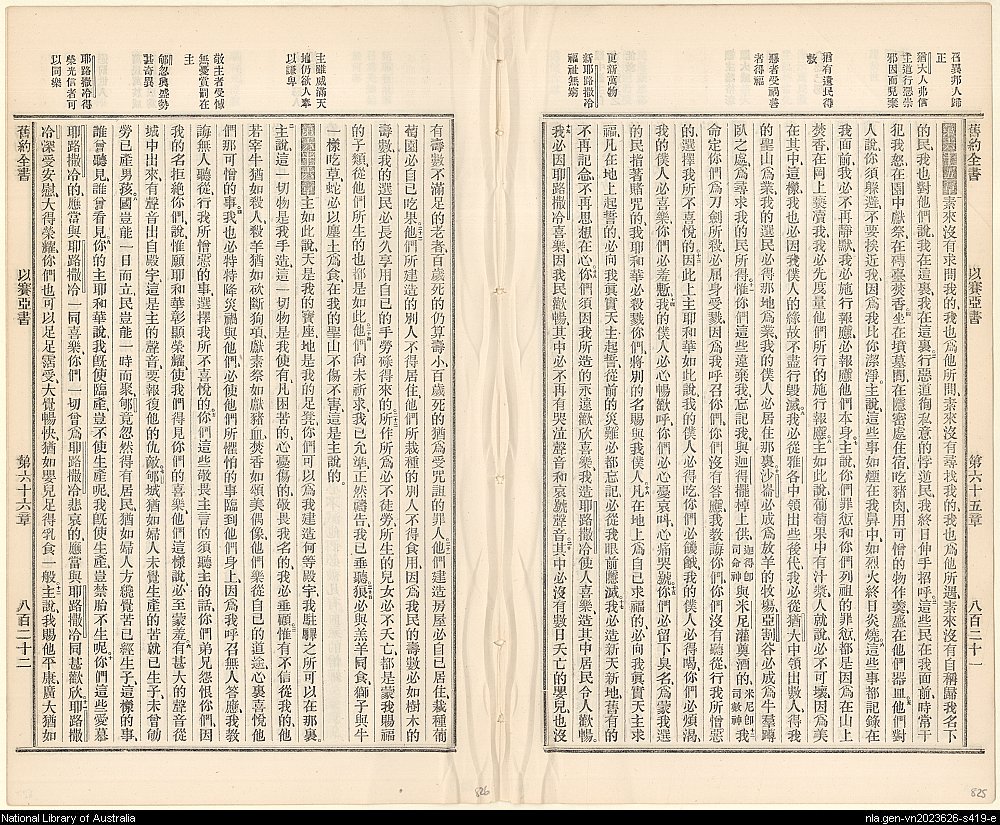 召異邦人歸
正
猶大人弗信
主道行惡崇
邪因而見棄
猶有遺民得
救
惡者受禍善
者得福
更新萬物
新耶路撒冷
福祉無窮
舊約全書 以賽亞書 第六十五章 八百二十一
素來沒有求問我的我也為他所問素來沒有尋找我的我也為他所遇素來沒有自稱歸我名下
的民我也對他們說我在這裏我在這裏行惡道徇私意的悖逆民我終日伸手招呼這些民在我面前時常干
犯我怒在園中獻祭在磚臺焚香坐在墳墓間在隱密處住宿吃豬肉用可憎的物作羹盛在他們器皿他們對
人說你須躲避不要挨近我因為我比你潔淨主說這些事如煙在我鼻中如烈火終日炎燒這些事都記錄在
我面前我必不再靜默我必施行報應必報應他們本身主說你們罪愆和你們列祖的罪愆都是因為在山上
焚香在岡上褻瀆我我必先度量他們所行的施行報應主如此說葡萄果中有汁漿人就說必不可壞因為美
在其中這樣我也必因我僕人的緣故不盡行毀滅我必從雅各中領出些後代我必從猶大中領出數人得我
的聖山為業我的選民必得那地為業我的僕人必居住那裏沙崙必成為放羊的牧場亞割谷必成為牛羣蹲
臥之處為尋求我的民所得惟你們這些遠棄我忘記我與迦得擺棹上供迦得卽司命神與米尼灌奠酒的米尼卽司數神我
命定你們為刀劍所殺必屈身受戮因為我呼召你們你們沒有答應我教誨你們你們沒有聽從行我所憎惡
的選擇我所不喜悅的因此上主耶和華如此說我的僕人必得吃你們必饑餓我的僕人必得喝你們必煩渴
我的僕人必喜樂你們必羞慙我的僕人必心暢歡呼你們必心憂哀叫心痛哭號你們必留下臭名為蒙我選
的民指着賭咒的我耶和華必殺戮你們將別的名賜與我僕人凡在地上為自己求福的必向我眞實天主求
福凡在地上起誓的必向我眞實天主起誓從前的災難必都忘記必從我眼前應滅我必造新天新地舊有的
不再記念不再思想在心你們須因我所造的永遠歡欣喜樂我造耶路撒冷使人喜樂造其中居民令人歡暢
我必因耶路撒冷喜樂因我民歡暢其中必不再有哭泣聲音和哀號聲音其中必沒有數日夭亡的嬰兒也沒
主雖威滿天
地仍欲人奉
以謙卑
敬主者受憾
無憂賞罰在
主
郇忽興盛勢
甚奇異
耶路撒冷得
榮光信者可
以同樂
有壽數不滿足的老者百歲死的仍算壽小百歲死的猶為受咒詛的罪人他們建造房屋必自己居住栽種葡
萄園必自己吃果他們所建造的別人不得居住他們所栽種的別人不得食用因為我民的壽數必如樹木的
壽數我的選民必長久享用自己的手勞碌得來的所作所為必不徒勞所生的兒女必不夭亡都是蒙我賜福
的子類從他們所生的也都是如此他們尚未祈求我已允準正然禱告我已垂聽狼必與羔羊同食獅子與牛
一樣吃草蛇必以塵土為食在我的聖山不傷不害這是主說的
主如此說天是我的寶座地是我的足凳你們可以為我建造何等殿宇我駐驛之所可以在那裏
主說這一切物是我手造這一切物是我使有凡困苦的心憂傷的敬畏我名的我必垂顧惟有不信從我的他
若宰牛猶如殺人殺羊猶如砍斷狗項獻素祭如獻豬血焚香如頌美偶像他們樂從自己的道途心裏喜悅他
們那可憎的事我也必特特降災禍與他們必使他們所懼怕的事臨到他們身上因為我呼召無人答應我教
誨無人聽從行我所憎惡的事選擇我所不喜悅的你們這些敬畏主言的須聽主的話你們弟兄怨恨你們因
我的名拒絕你們說惟願耶和華彰顯榮耀使我們得見你們的喜樂他們這樣說必至蒙羞有甚大的聲音從
城中出來有聲音出自殿宇這是主的聲音要報復他的仇敵郇城猶如婦人未覺生產的苦就已生子未曾劬
勞已產男孩國豈能一日而立民豈能一時而聚郇竟忽然得有居民猶如婦人方纔覺苦已經生子這樣的事
誰曾聽見誰曾看見你的主耶和華說我旣使臨產豈不使生產呢我旣使生產豈禁胎不生呢你們這些愛慕
耶路撒冷的應當與耶路撒冷一同喜樂你們一切曾為耶路撒冷悲哀的應當與耶路撒冷同甚歡欣耶路撒
冷深受安慰大得榮耀你們也可以足足霑受大覺暢快猶如嬰兒足得乳食一般主說我賜他平康廣大猶如
舊約全書 以賽亞書 第六十六章 八百二十二
826
825
National Library of Australia
nla.gen-vn2023626-s419-e